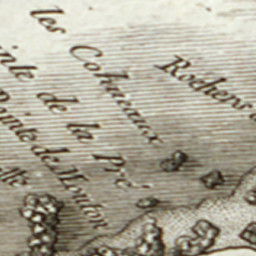 les Cohuaux
Rochers
inte de la Pré
Pointe de Mouton